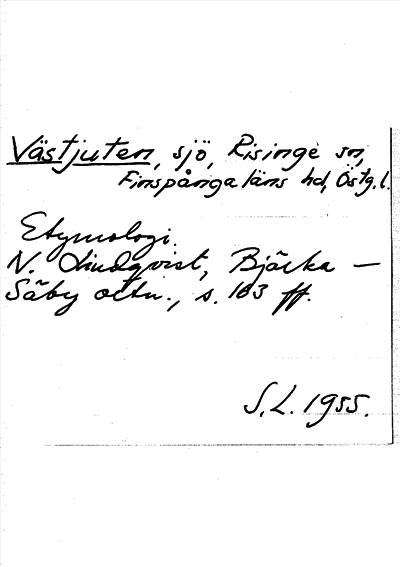 Västjuten, sjö, Risinge sn,
Finspånga läns hd, Östg.l.
Etymologi.
N. Lindqvist, Bjärka –
Säby ortn., s. 163 ff.
S.L. 1955.